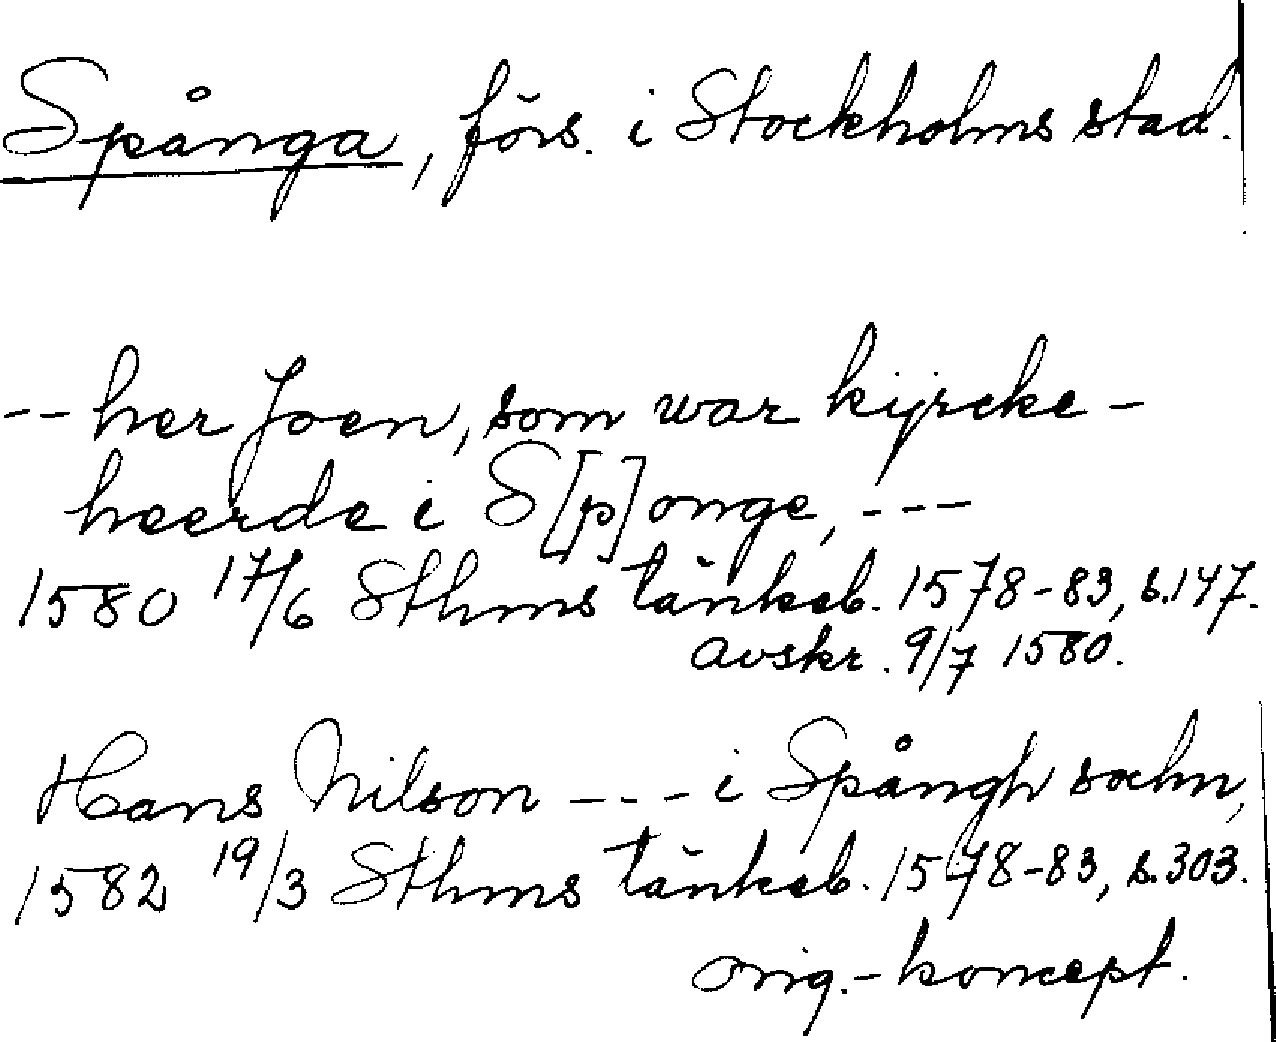 Spånga, förs. i Stockholms stad.
-- her Joen, som war kijrcke-
heerde i S[p]onge, ---
1580 17/6 Sthms tänkeb. 1578-83, s.147.
avskr. 9/7 1580.
Hans Nilson --- i Spångh sochn,
1582 19/3 Sthms tänkeb. 1578-83, s.303.
orig.-koncept.